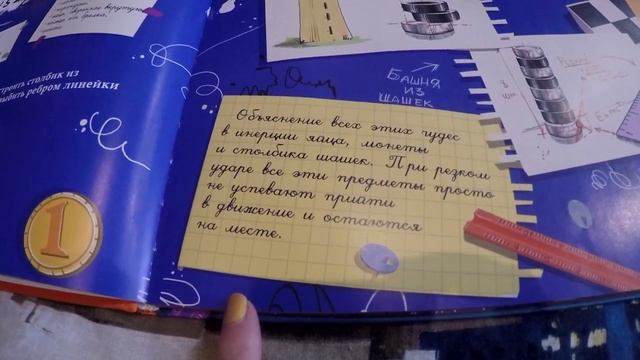 троить столбик из
выбить ребром линейки
БАШНЯ
ИЗ
ШАШЕК
Объяснение всех этих чудес
в инерции яйца, монеты
и столбика шашек. При резком
ударе все эти предметы просто
не успевают прийти
в движение и остаются
на месте.
1